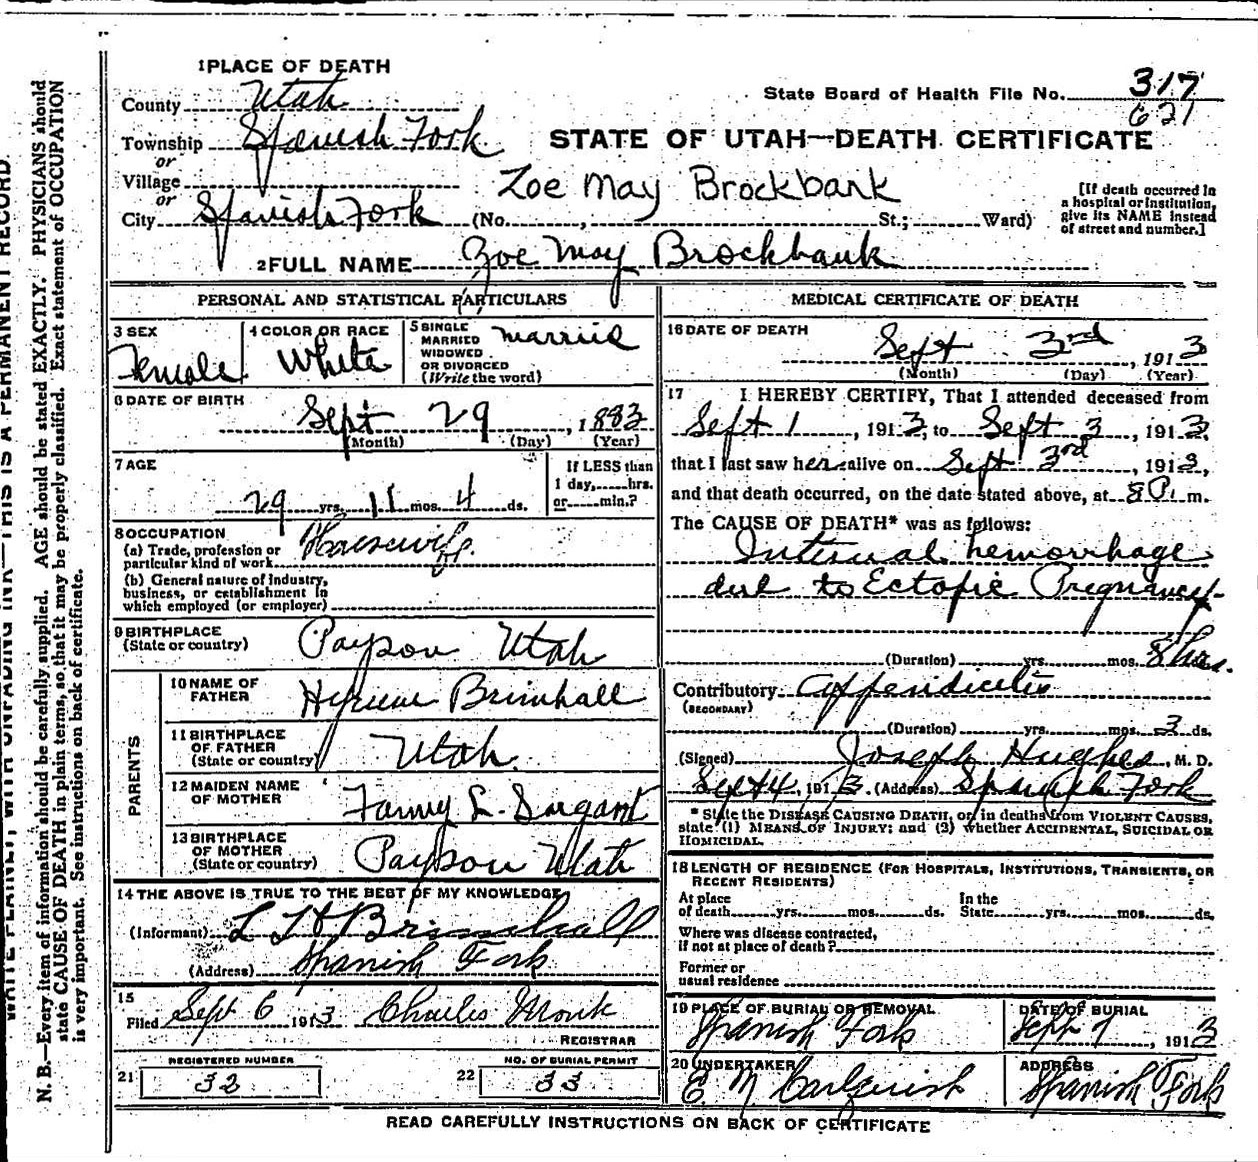 1 PLACE OF DEATH
County Utah
State Board of Health File No. 317
621
Township Spanish Fork
STATE OF UTAH—DEATH CERTIFICATE
or
Village
Zoe May Brockbank
or
City Spanish Fork (No. , St.; Ward)
[If death occurred in a hospital or institution, give its NAME instead of street and number.]
2 FULL NAME Zoe May Brockbank
PERSONAL AND STATISTICAL PARTICULARS
3 SEX
Female
4 COLOR OR RACE
White
5 SINGLE MARRIED WIDOWED OR DIVORCED (Write the word)
Married
6 DATE OF BIRTH
Sept 29, 1883
(Month) (Day) (Year)
7 AGE
29 yrs. 11 mos. 4 ds.
If LESS than 1 day, hrs. or min.?
8 OCCUPATION
(a) Trade, profession or particular kind of work Housewife.
(b) General nature of Industry, business, or establishment in which employed (or employer)
9 BIRTHPLACE
(State or country) Payson Utah
PARENTS
10 NAME OF FATHER Hyrum Brimhall
11 BIRTHPLACE OF FATHER (State or country) Utah.
12 MAIDEN NAME OF MOTHER Fanny L. Sargant
13 BIRTHPLACE OF MOTHER (State or country) Payson Utah
14 THE ABOVE IS TRUE TO THE BEST OF MY KNOWLEDGE
(Informant) L H Brimhall
(Address) Spanish Fork
15
Filed Sept 6 1913 Charles Monk
REGISTRAR
REGISTERED NUMBER
21 32
NO. OF BURIAL PERMIT
22 33
MEDICAL CERTIFICATE OF DEATH
16 DATE OF DEATH
Sept 3rd, 1913
(Month) (Day) (Year)
17 I HEREBY CERTIFY, That I attended deceased from
Sept 1, 1913, to Sept 3, 1913,
that I last saw her alive on Sept 3rd, 1913,
and that death occurred, on the date stated above, at 8 P. m.
The CAUSE OF DEATH* was as follows:
Internal hemorrhage
due to Ectopic Pregnancy
(Duration) yrs. mos. 8 hrs.
Contributory Appendicitis
(SECONDARY)
(Duration) yrs. mos. 3 ds.
(Signed) Joseph Hughes, M. D.
Sept 4, 1913. (Address) Spanish Fork
* State the DISEASE CAUSING DEATH, or, in deaths from VIOLENT CAUSES,
state (1) MEANS OF INJURY; and (2) whether ACCIDENTAL, SUICIDAL OR
HOMICIDAL.
18 LENGTH OF RESIDENCE (FOR HOSPITALS, INSTITUTIONS, TRANSIENTS, OR
RECENT RESIDENTS)
At place of death yrs. mos. ds. In the State yrs. mos. ds.
Where was disease contracted,
if not at place of death?
Former or
usual residence
19 PLACE OF BURIAL OR REMOVAL
Spanish Fork
DATE OF BURIAL
Sept 7, 1913
20 UNDERTAKER
ADDRESS
Spanish Fork
READ CAREFULLY INSTRUCTIONS ON BACK OF CERTIFICATE
WRITE PLAINLY, WITH UNFADING INK—THIS IS A PERMANENT RECORD
N. B.—Every item of information should be carefully supplied. AGE should be stated EXACTLY. PHYSICIANS should
state CAUSE OF DEATH in plain terms, so that it may be properly classified. Exact statement of OCCUPATION
is very important. See instructions on back of certificate.